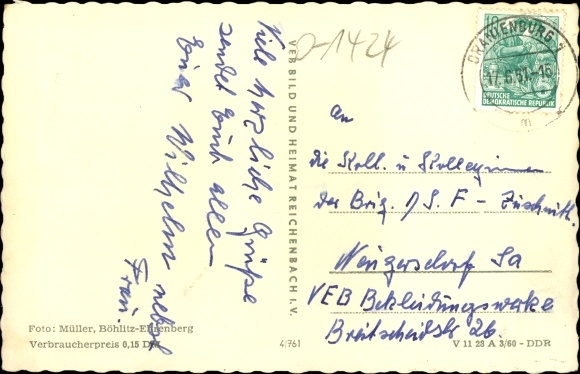 Viele herzliche Grüße
sendet Euch allen
Euer Wilhelm nebst
Frau.
VEB BILD UND HEIMAT REICHENBACH I. V.
D-1424
ORANIENBURG 1
17.6.61-15
m
10
DEUTSCHE
DEMOKRATISCHE REPUBLIK
An
die Koll. u Kolleginnen
der Brig. S. F - Zuschnitt.
Neugersdorf Sa
VEB Bekleidungswerke
Breitscheidstr 26.
Foto: Müller, Böhlitz-Ehrenberg
Verbraucherpreis 0,15 DM
4/761
V 11 28 A 3/60 - DDR